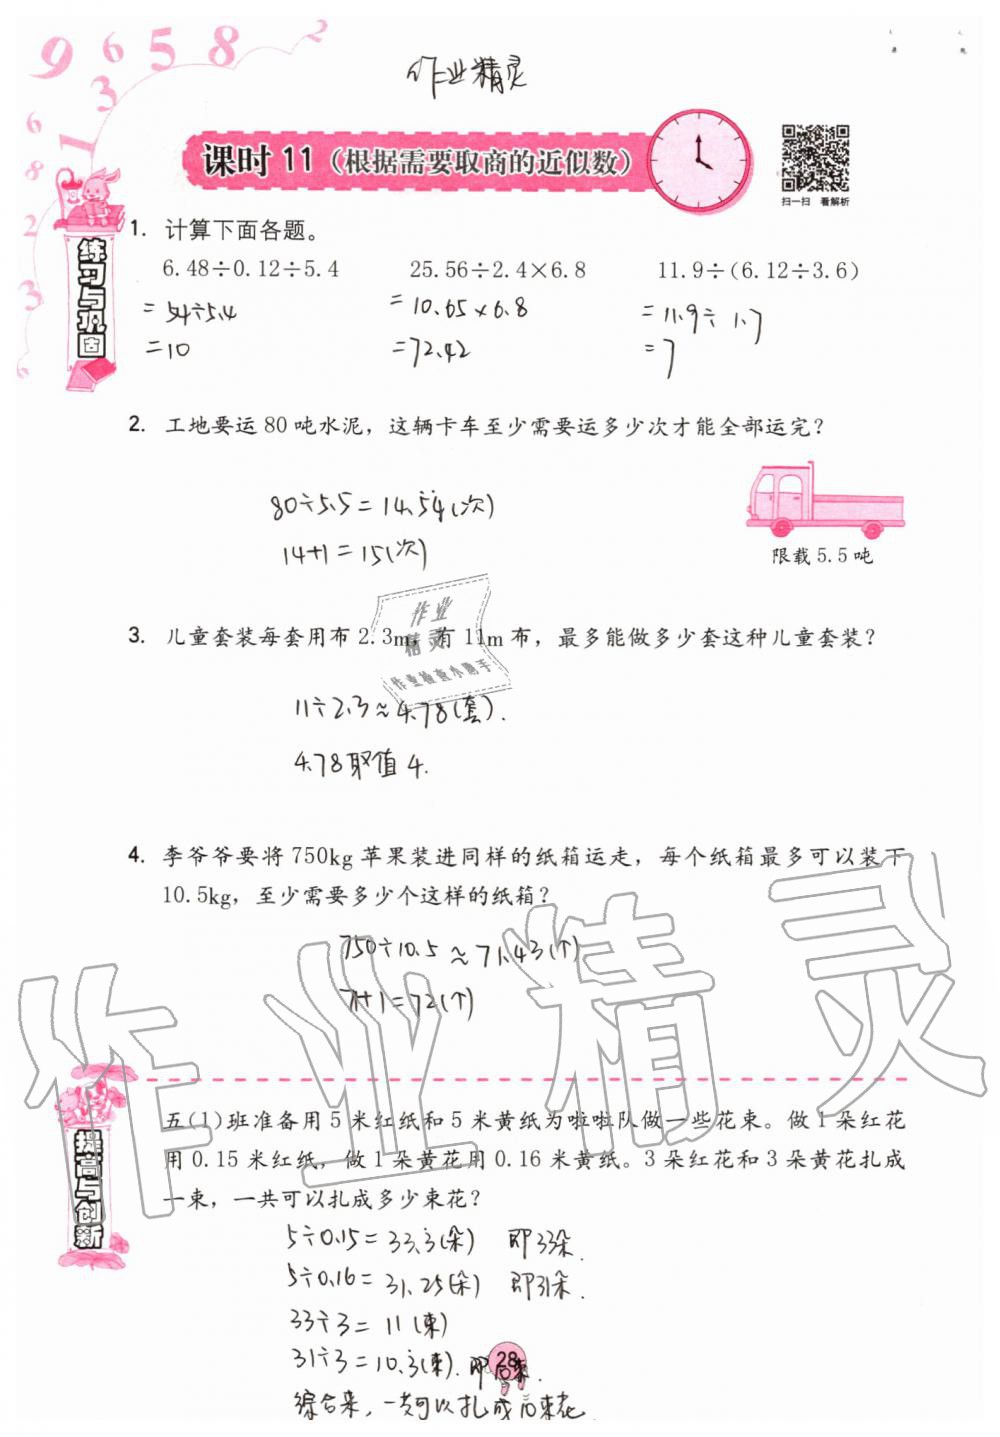 9 6 5 8 2
作业精灵
3
1
6
8
2
3
课时 11（根据需要取商的近似数）
扫一扫 看解析
练习与巩固
1. 计算下面各题。
6.48÷0.12÷5.4 25.56÷2.4×6.8 11.9÷(6.12÷3.6)
=54÷5.4 =10.65×6.8 =11.9÷1.7
=10 =72.42 =7
2. 工地要运 80 吨水泥，这辆卡车至少需要运多少次才能全部运完？
80÷5.5=14.5̇4̇(次)
14+1=15(次)
限载 5.5 吨
3. 儿童套装每套用布 2.3m，有 11m 布，最多能做多少套这种儿童套装？
作业
精灵
作业检查小助手
11÷2.3≈4.78(套).
4.78取值4.
4. 李爷爷要将 750kg 苹果装进同样的纸箱运走，每个纸箱最多可以装下
10.5kg，至少需要多少个这样的纸箱？
750÷10.5≈71.43(个)
71+1=72(个)
作业精灵
提高与创新
五(1)班准备用 5 米红纸和 5 米黄纸为啦啦队做一些花束。做 1 朵红花
用 0.15 米红纸，做 1 朵黄花用 0.16 米黄纸。3 朵红花和 3 朵黄花扎成
一束，一共可以扎成多少束花？
5÷0.15=33.3̇(朵) 即33朵.
5÷0.16=31.25(朵) 即31朵.
33÷3=11(束)
31÷3=10.3̇(束). 即10束.
28
综合来，一共可以扎成10束花.